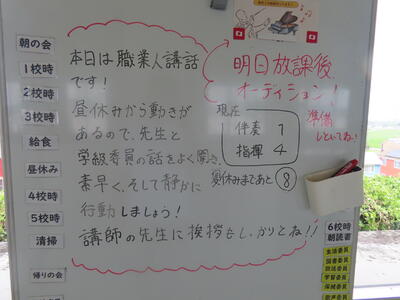 朝の会
1校時
2校時
3校時
給食
昼休み
4校時
5校時
清掃
帰りの会
本日は職業人講話
です！
昼休みから動きが
あるので、先生と
学級委員の話をよく聞き、
素早く、そして静かに
行動しましょう！
講師の先生に挨拶もしっかりとね!!
明日放課後
オーディション！
準備
しといてね！
現在
伴奏 1
指揮 4
夏休みまであと 8
6校時
朝読書
生活委員
図書委員
放送委員
学習委員
保健委員